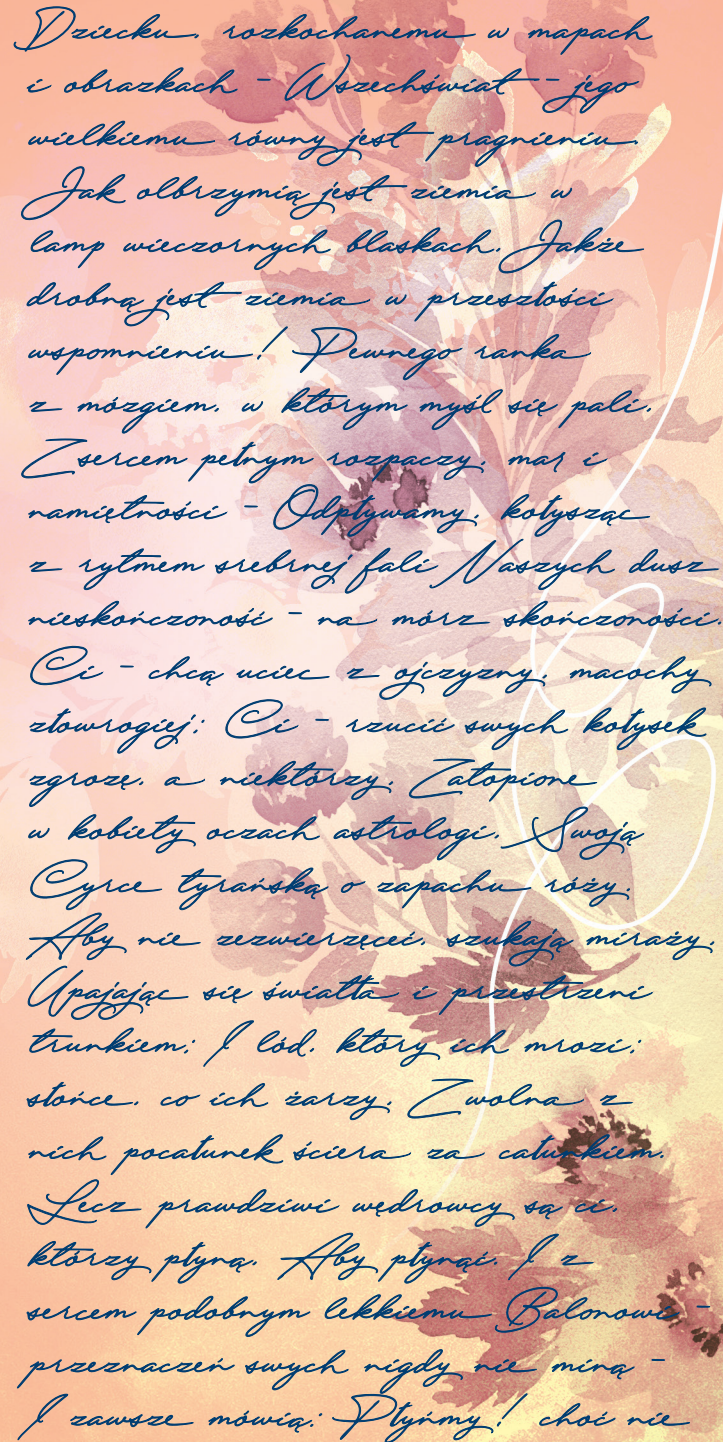 Dziecku, rozkochanemu w mapach
i obrazkach - Wszechświat - jego
wielkiemu równy jest pragnieniu.
Jak olbrzymią jest ziemia w
lamp wieczornych blaskach, Jakże
drobną jest ziemia w przeszłości
wspomnieniu! Pewnego ranka
z mózgiem, w którym myśl się pali,
Z sercem pełnym rozpaczy, mar i
namiętności - Odpływamy, kołysząc
z rytmem srebrnej fali Naszych dusz
nieskończoność - na mórz skończoności.
Ci - chcą uciec z ojczyzny, macochy
złowrogiej; Ci - rzucić swych kołysek
zgrozę, a niektórzy, Zatopione
w kobiety oczach astrologi, Swoją
Cyrce tyrańską o zapachu róży,
Aby nie zezwierzęceć, szukają miraży,
Upajając się światła i przestrzeni
trunkiem; I lód, który ich mrozi;
słońce, co ich żarzy, Zwolna z
nich pocałunek ściera za całunkiem.
Lecz prawdziwi wędrowcy są ci,
którzy płyną, Aby płynąć. I z
sercem podobnym lekkiemu Balonowi -
przeznaczeń swych nigdy nie miną -
I zawsze mówią: Płyńmy! choć nie